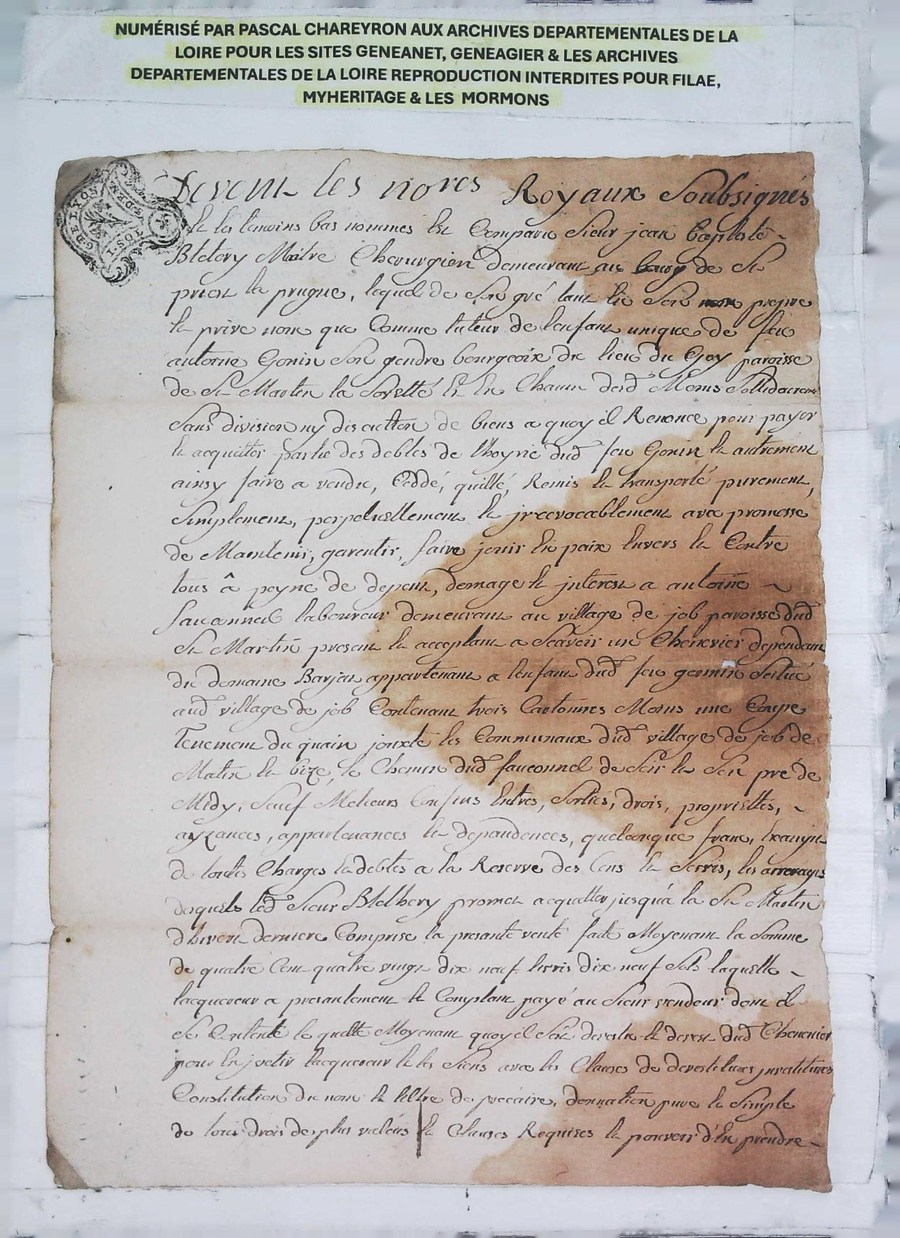 NUMÉRISÉ PAR PASCAL CHAREYRON AUX ARCHIVES DEPARTEMENTALES DE LA
LOIRE POUR LES SITES GENEANET, GENEAGIER & LES ARCHIVES
DEPARTEMENTALES DE LA LOIRE REPRODUCTION INTERDITES POUR FILAE,
MYHERITAGE & LES MORMONS
G. DE LYON
Devent les nores Royaux Soubsignés
Et les temoins bas nommes Est Comparu Sieur jean baptiste
Bletery Maitre Chirurgien demeurant au bourg de St
priest la prugne, lequel de Son gré tant En Son propre
Et privé nom que Comme tuteur de lenfant unique de feu
antoine Gonin Son gendre bourgeoix du lieu du Goy paroisse
de St Martin la Sovetté Et En Chacun desd Noms Sollidairement
Sans division ny discution de biens a quoy il Renonce pour payer
Et acquitter partie des debtes de lhoyrié dud feu Gonin Et autrement
ainsy faire a vendu, Ceddé, quitté, Remis Et transporté purement,
Simplement, perpetuellement Et jrrevocablement avec promesse
de Maintenir, garentir, faire jouir En paix Envers Et Contre
tous à peyne de depens, domage Et jnterest a antoine
fauconnel laboureur demeurant au village de job paroisse dud
St Martin present Et acceptant a Scavoir un Chenevier dependant
du domaine Barjat appartenant a lenfant dud feu gonnin Scitué
aud village de job Contenant trois Cartonnes Moins une Coupe
Tenement du quain jouxte les Communaux dud village de job de
Matin Et bize, le Chemin dud fauconnel de Soir Et Son pré de
Midy, Sauf Melieurs Confins Entres, Sorties, drois, proprietés,
ayzances, appartenances Et dependences, quelconque franc, Exampt
de toutes Charges Et debtes a la Reserve des Cens Et Servis, les arrerages
desquels led Sieur Blethery promet acquitter jusquà la St Martin
dhivert derniere Comprise la presante vente faite Moyenant la Somme
de quatre Cent quatre vingt dix neuf livres dix neuf Sols laquelle
lacquereur a presantement Et Comptant payé au Sieur vendeur dont il
Se Contente Et quitte Moyenant quoy il Sest devetu Et devest dud Chenevier
pour En jvetir lacquereur Et les Siens avec les Clauses de devestitures jnvestitures
Constitution du nom Et titre de precaire, donnation pure Et Simple
de tous drois de plus valeurs Et Clauses Requises Et pouvoir d'En prendre